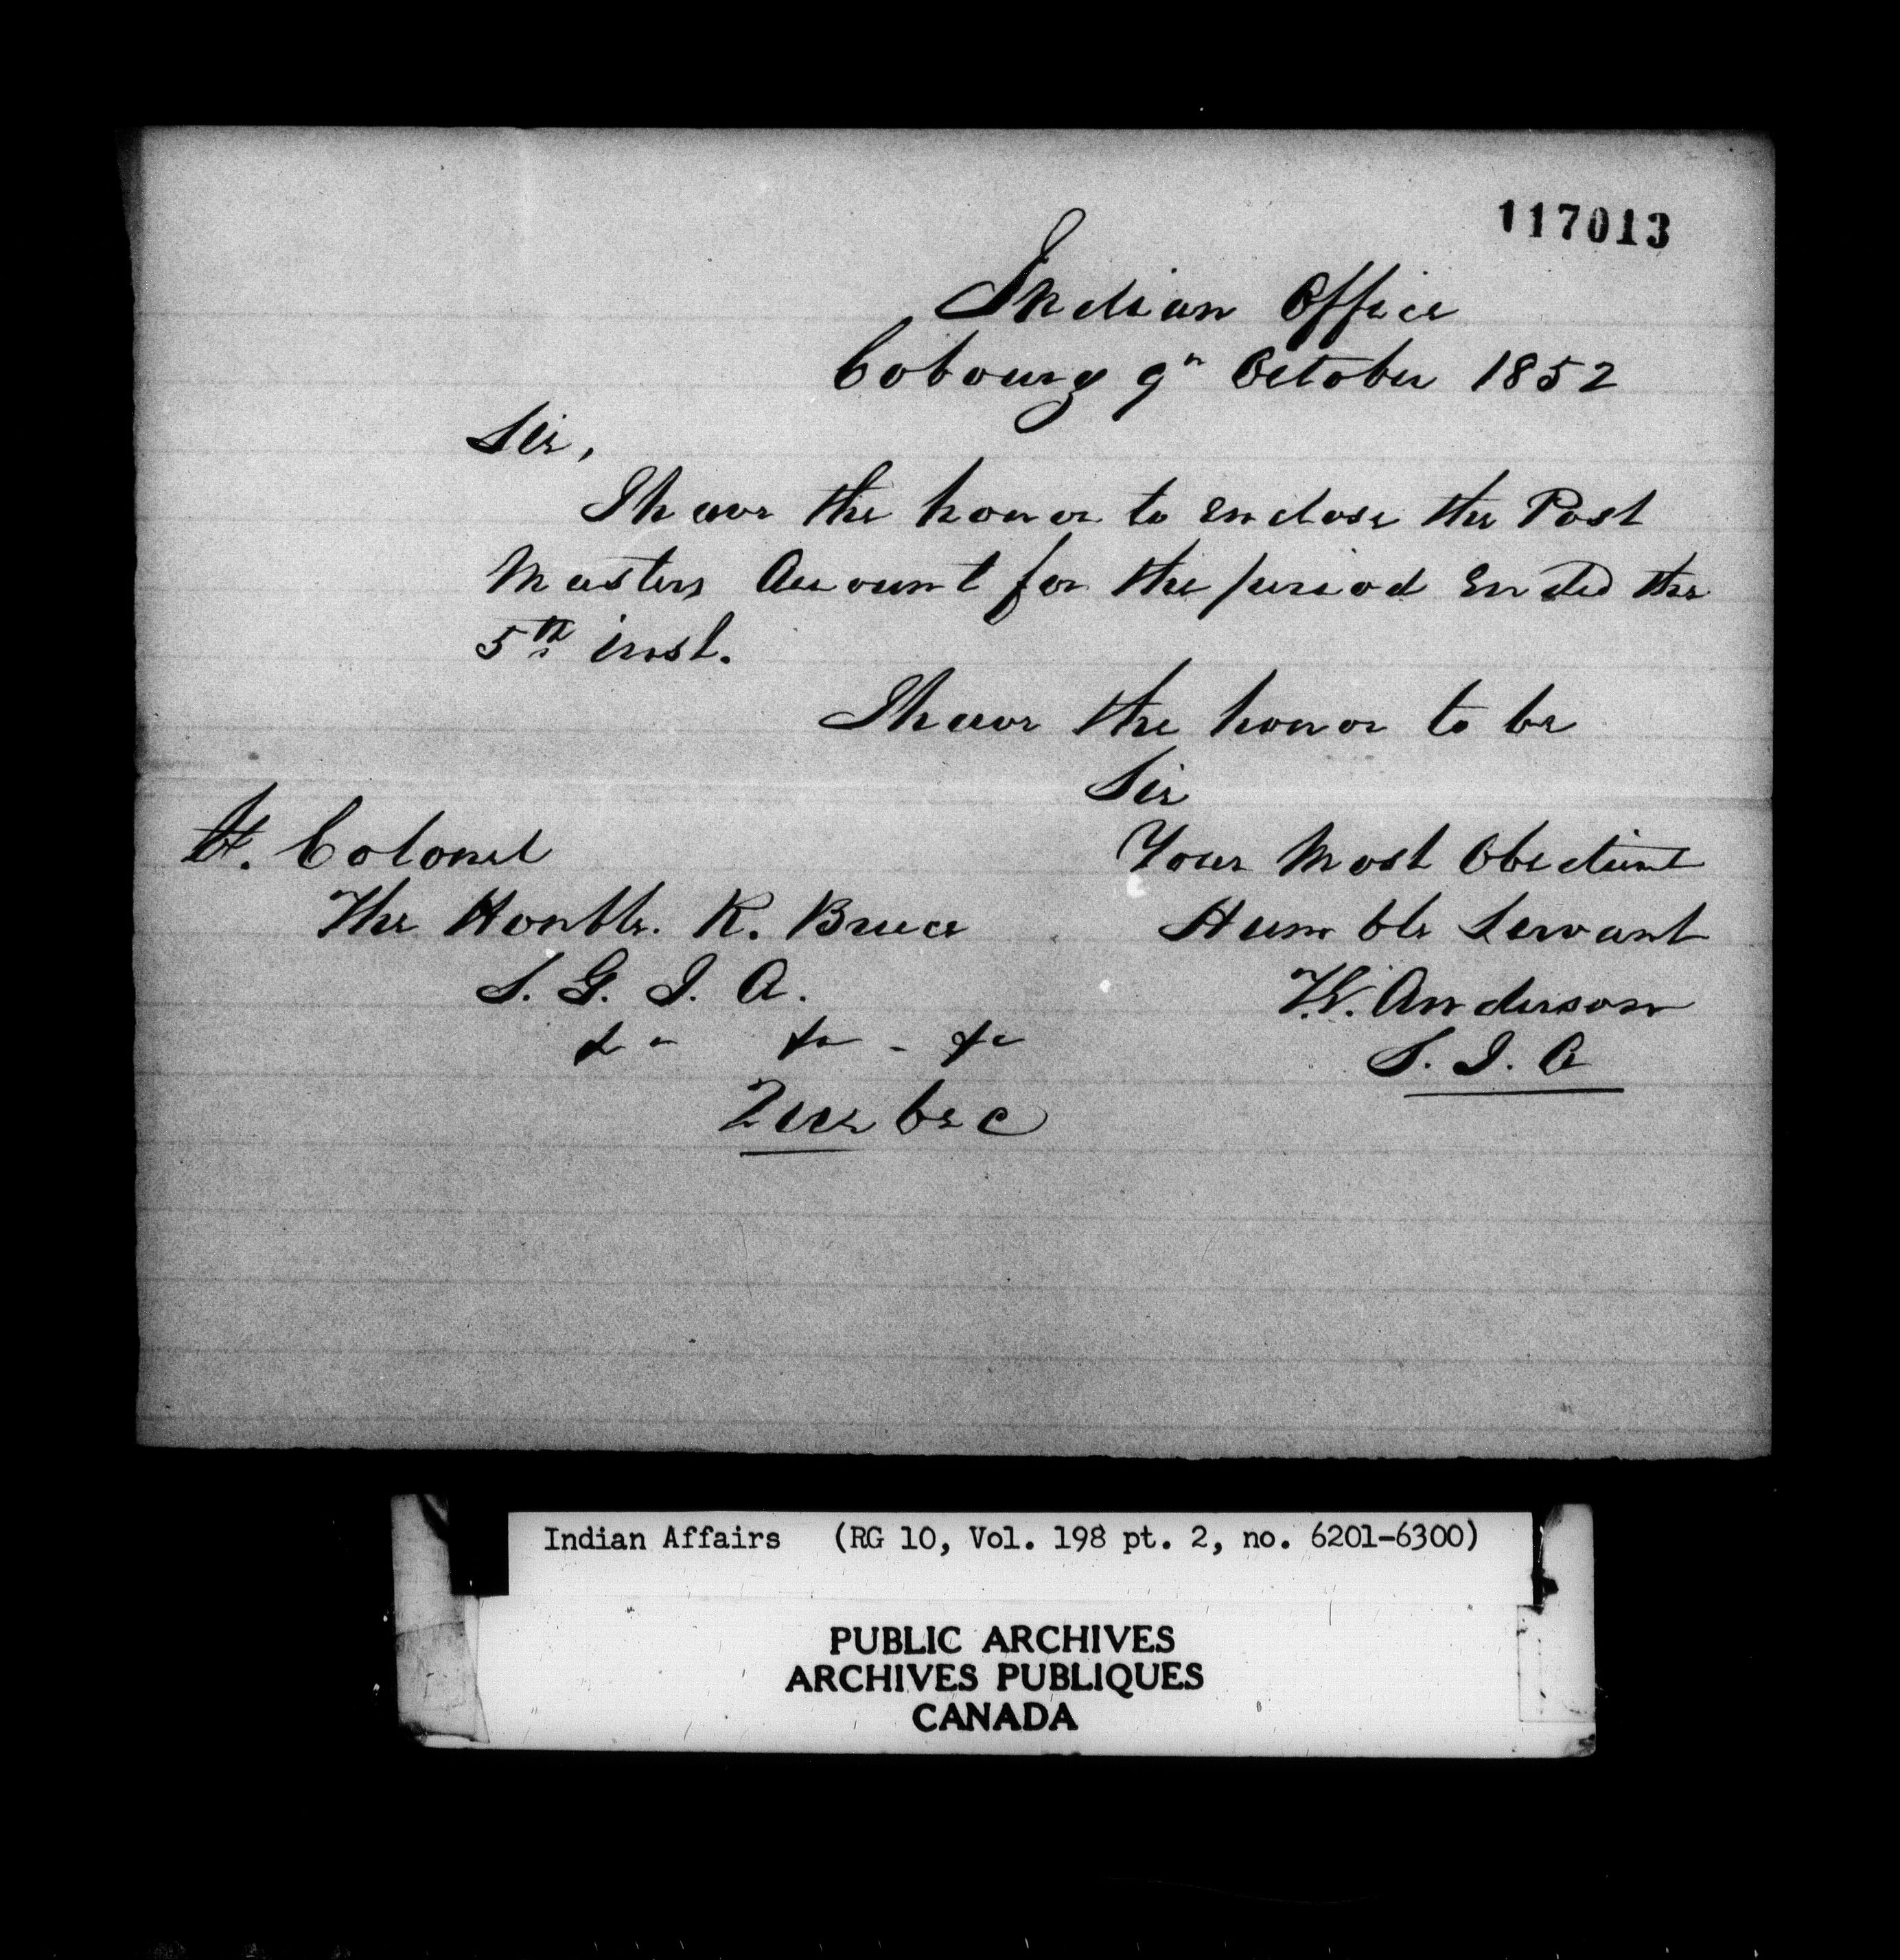 117013
Indian Office
Cobourg 9th October 1852
Sir,
I have the honor to enclose the Post
Masters Account for the period Ended the
5th inst.
I have the honor to be
Sir
Your Most Obedient
Humble Servant
Lt. Colonel
The Honble. R. Bruce
S. G. I. A.
&c &c - &c
Quebec
Anderson
S. I. A
Indian Affairs (RG 10, Vol. 198 pt. 2, no. 6201-6300)
PUBLIC ARCHIVES
ARCHIVES PUBLIQUES
CANADA